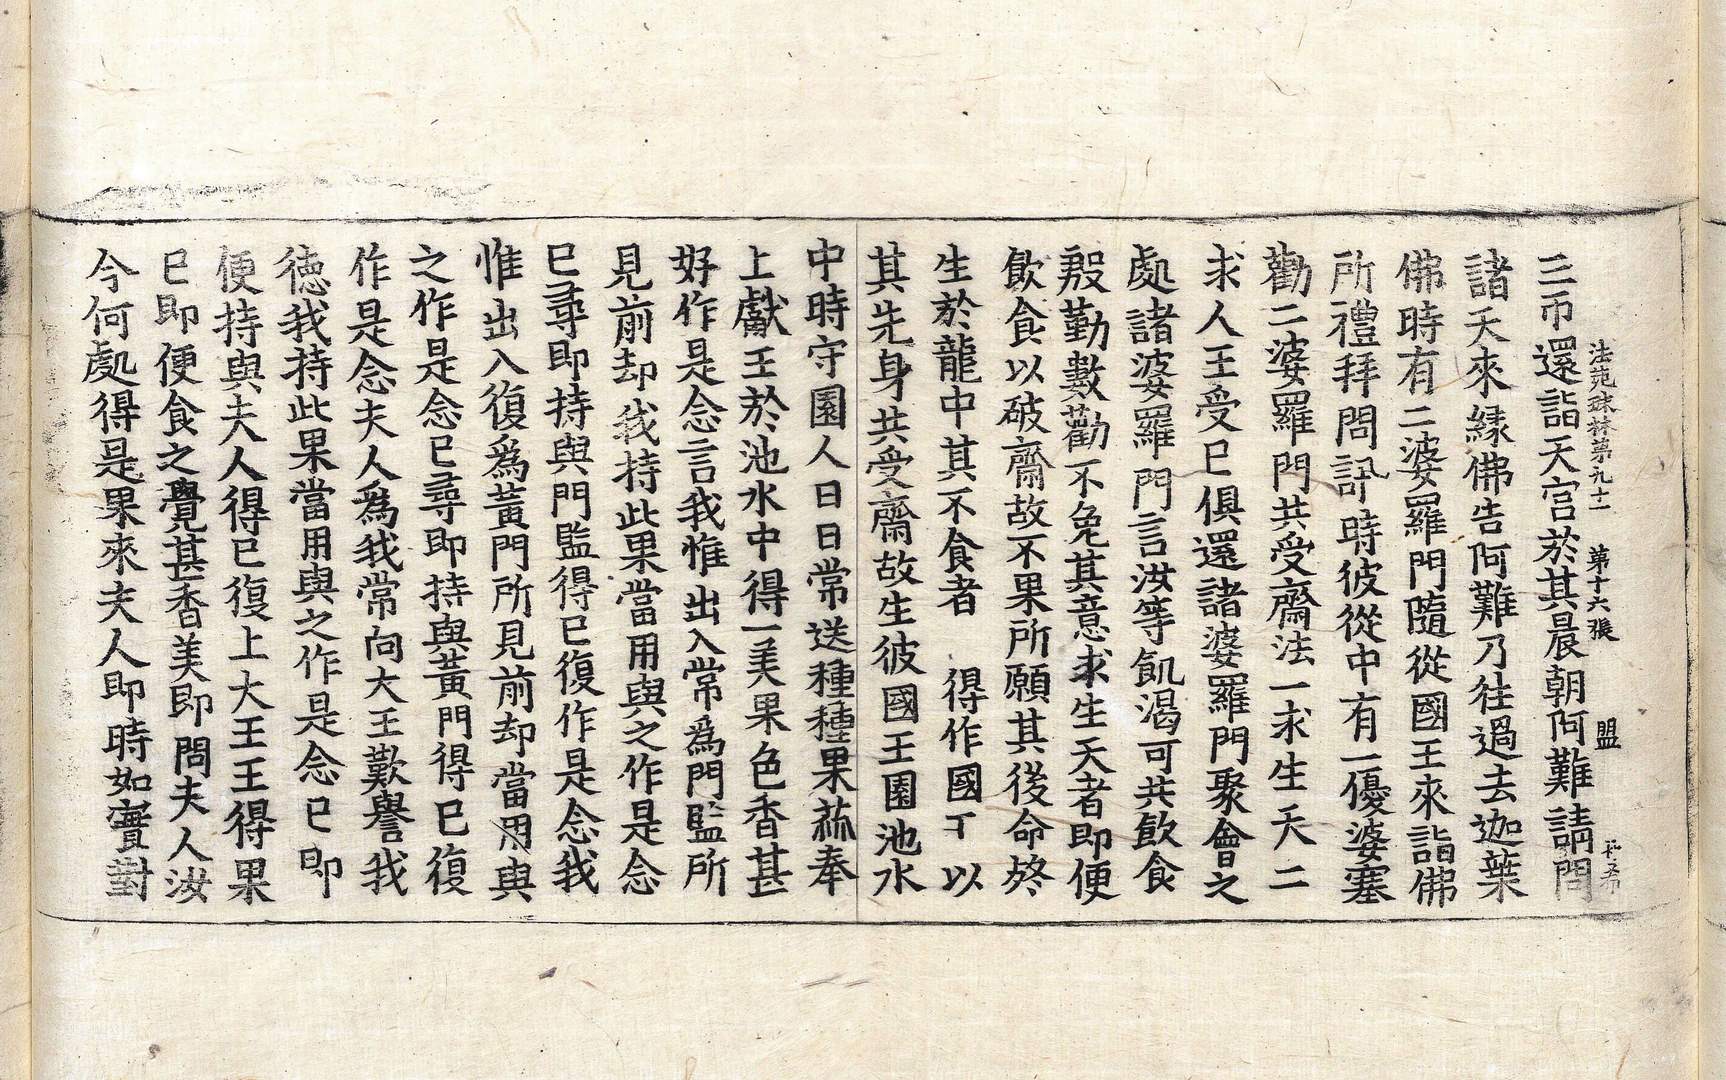 法苑珠林第九十一　第十六張　盟
三帀還詣天宮於其晨朝阿難請問
諸天來緣佛告阿難乃往過去迦葉
佛時有二婆羅門隨從國王來詣佛
所禮拜問訊時彼從中有一優婆塞
勸二婆羅門共受齋法一求生天二
求人王受已俱還諸婆羅門聚會之
處諸婆羅門言汝等飢渴可共飲食
殷勤數勸不免其意求生天者即便
飲食以破齋故不果所願其後命終
生於龍中其不食者　得作國王以
其先身共受齋故生彼國王園池水
中時守園人日日常送種種果蓏奉
上獻王於池水中得一美果色香甚
好作是念言我惟出入常爲門監所
見前却我持此果當用與之作是念
已尋即持與門監得已復作是念我
惟出入復爲黃門所見前却當用與
之作是念已尋即持與黃門得已復
作是念夫人爲我常向大王歎譽我
德我持此果當用與之作是念已即
便持與夫人得已復上大王王得果
已即便食之覺甚香美即問夫人汝
今何處得是果來夫人即時如實對